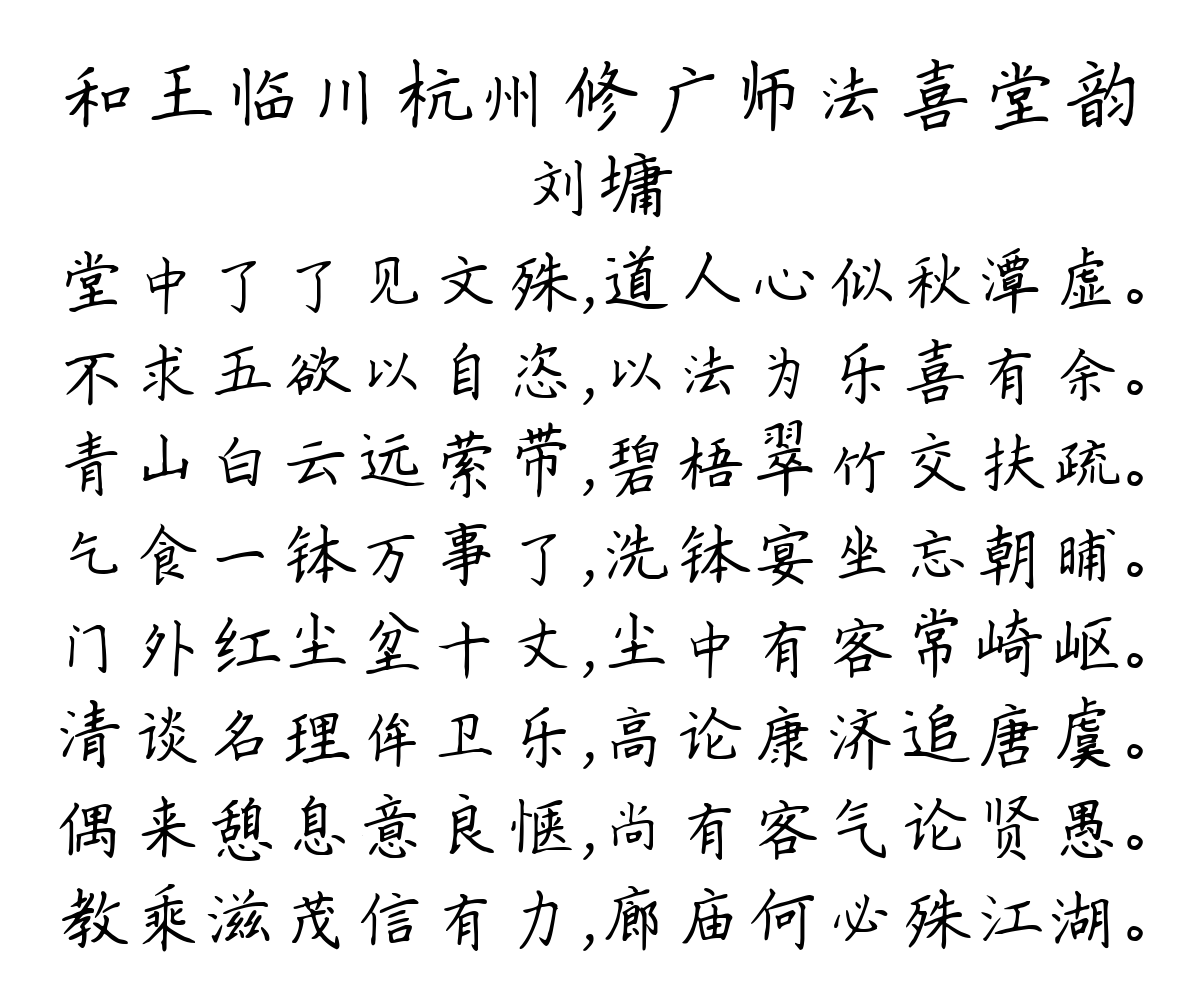 和王临川杭州修广师法喜堂韵
刘墉
堂中了了见文殊,道人心似秋潭虚。
不求五欲以自恣,以法为乐喜有余。
青山白云远萦带,碧梧翠竹交扶疏。
乞食一钵万事了,洗钵宴坐忘朝晡。
门外红尘坌十丈,尘中有客常崎岖。
清谈名理侔卫乐,高论康济追唐虞。
偶来憩息意良惬,尚有客气论贤愚。
教乘滋茂信有力,廊庙何必殊江湖。